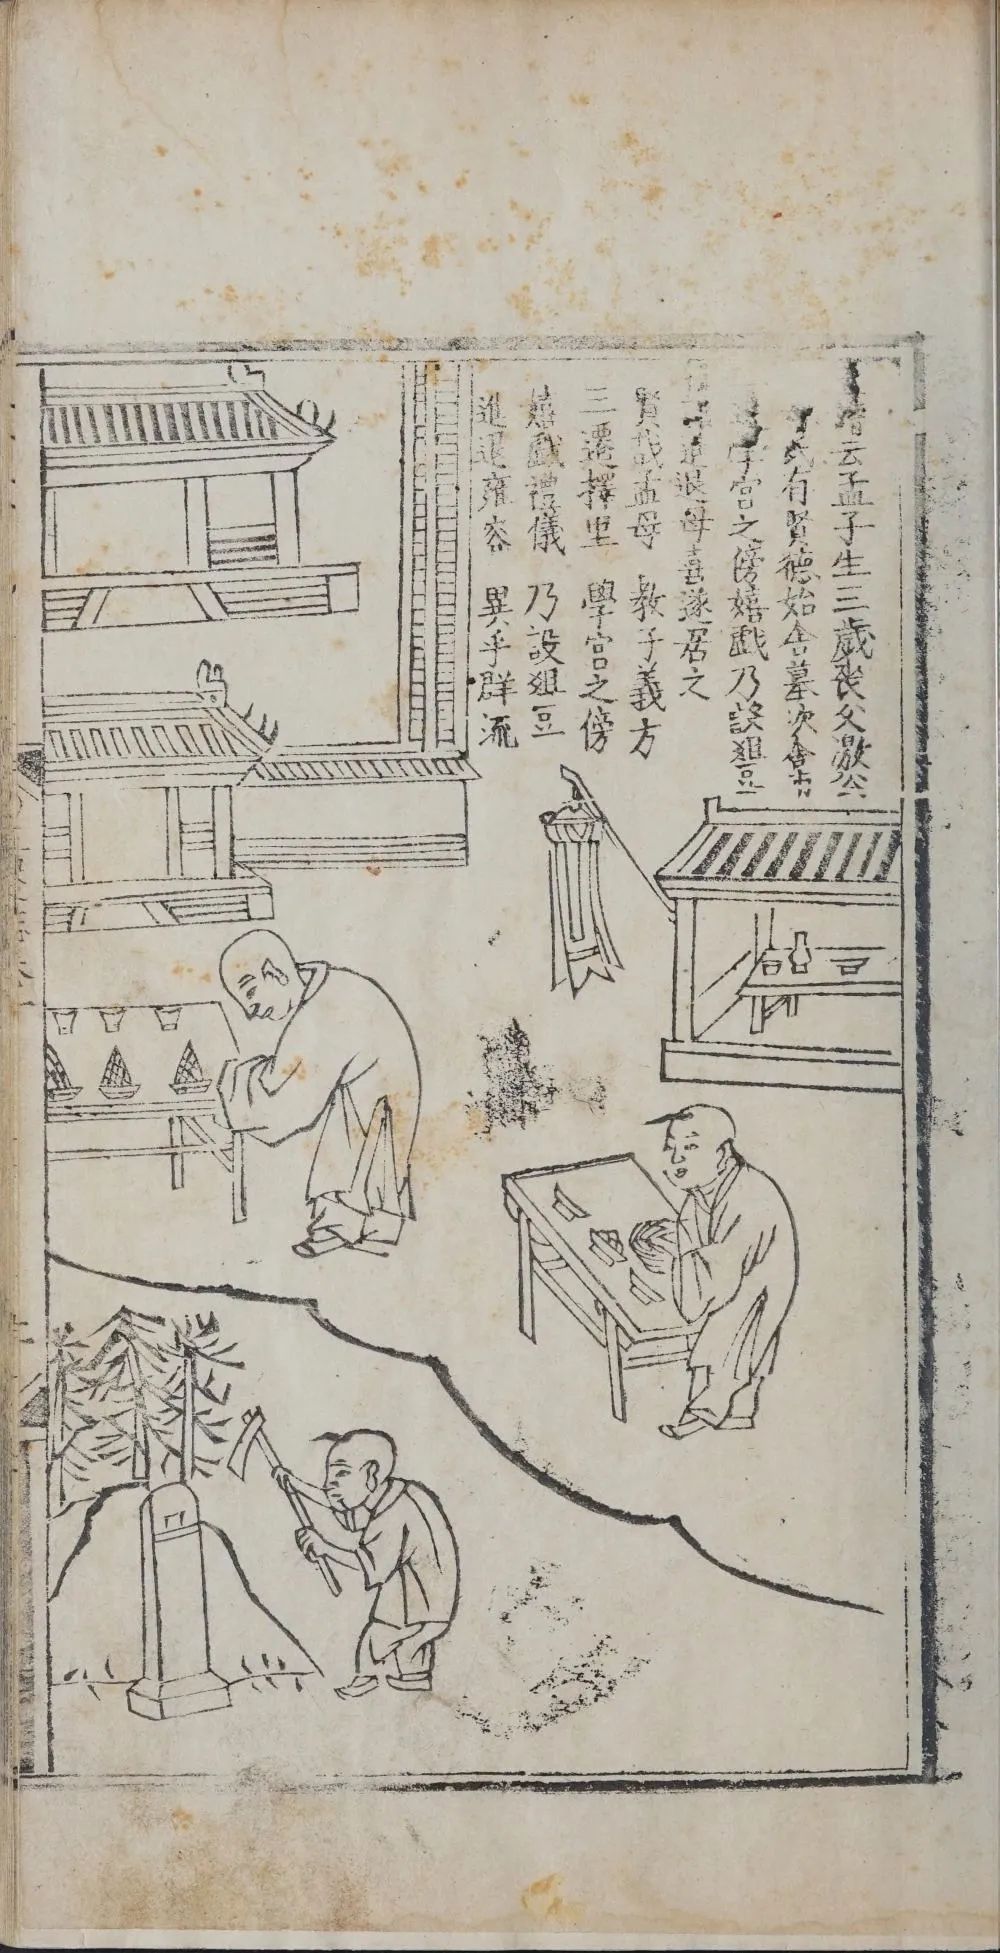 云孟子生三歲喪父激公
氏有賢德始舍墓次舍市
學宮之傍嬉戲乃設俎豆
進退母喜遂居之
賢哉孟母　教子義方
三遷擇里　學宮之傍
嬉戲禮儀　乃設俎豆
進退雍容　異乎群流